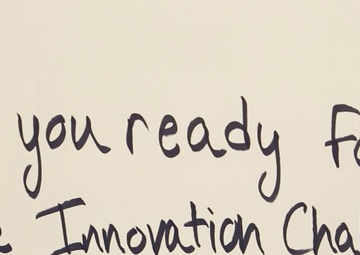 you ready fo
e Innovation Cha